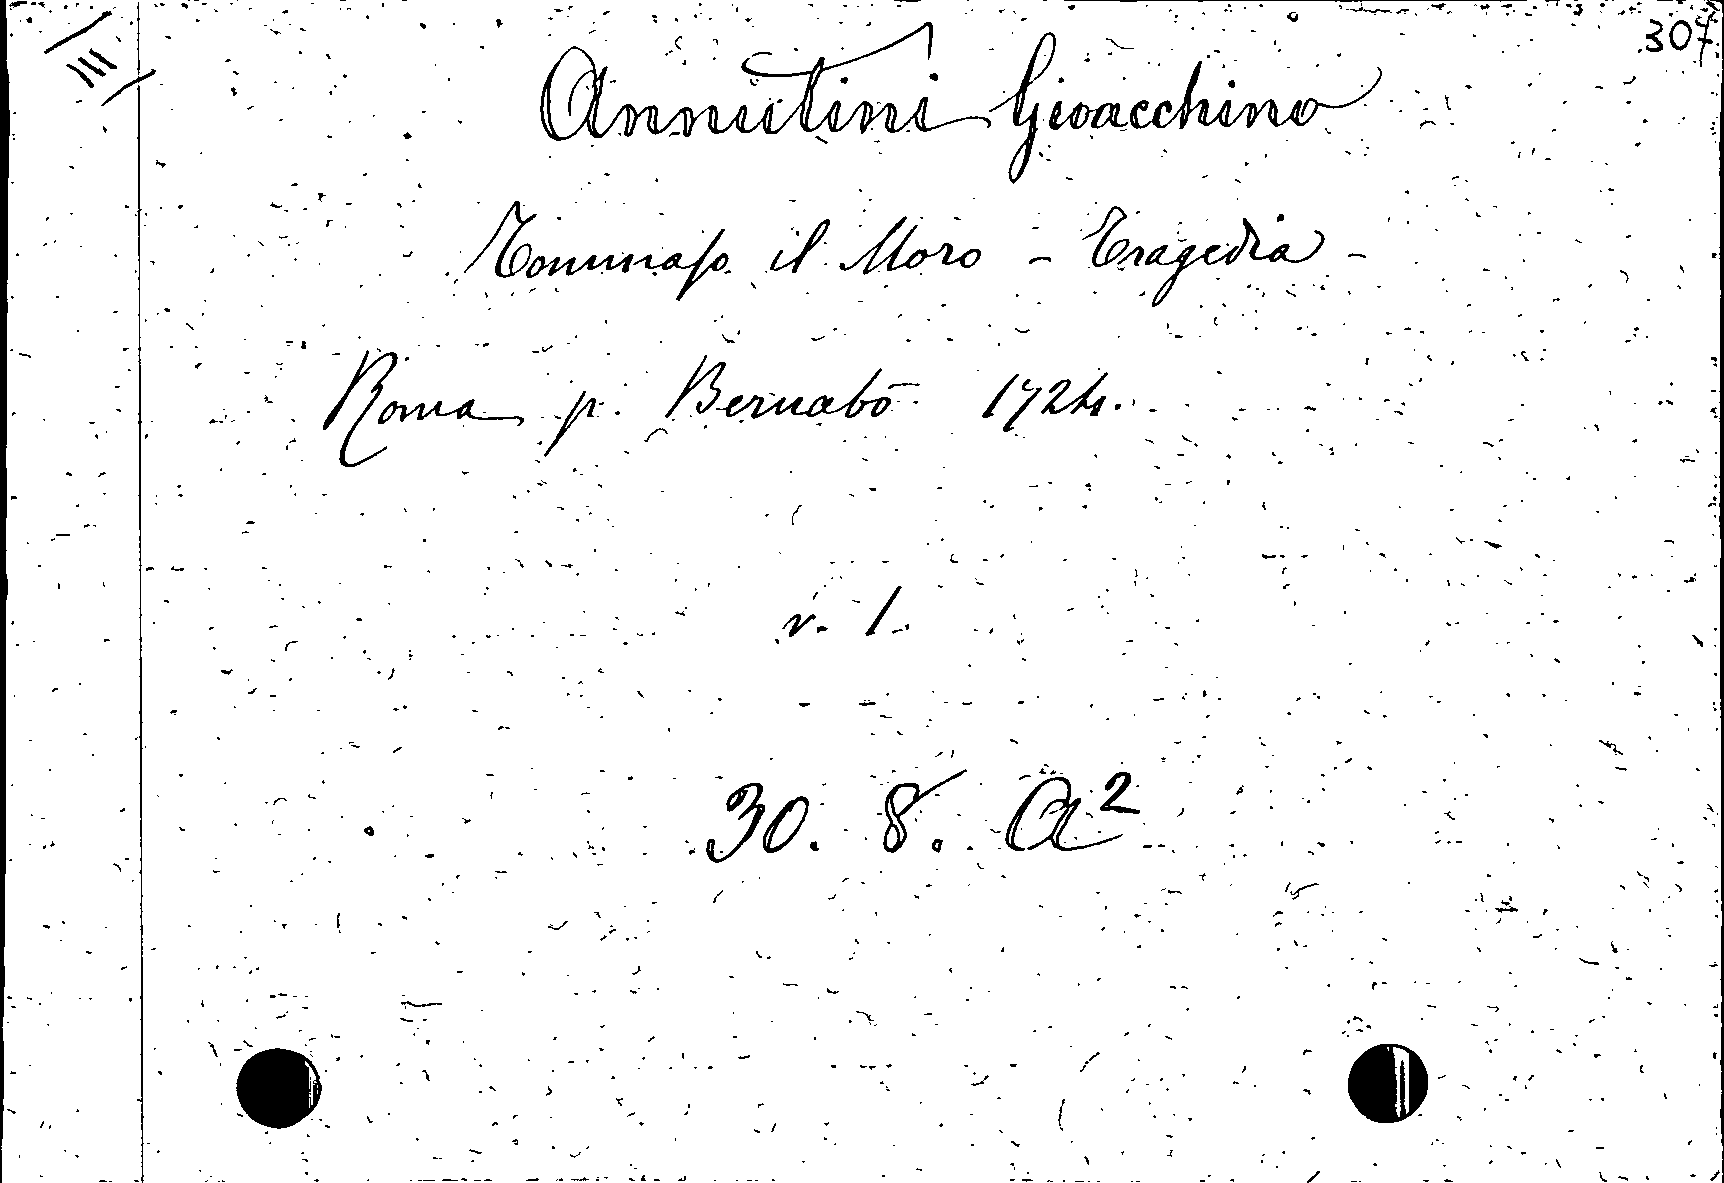 III
307
Annutini Gioacchino
Tommaso il Moro - Tragedia -
Roma p. Bernabò 1724.
v. 1.
30. 8. A²